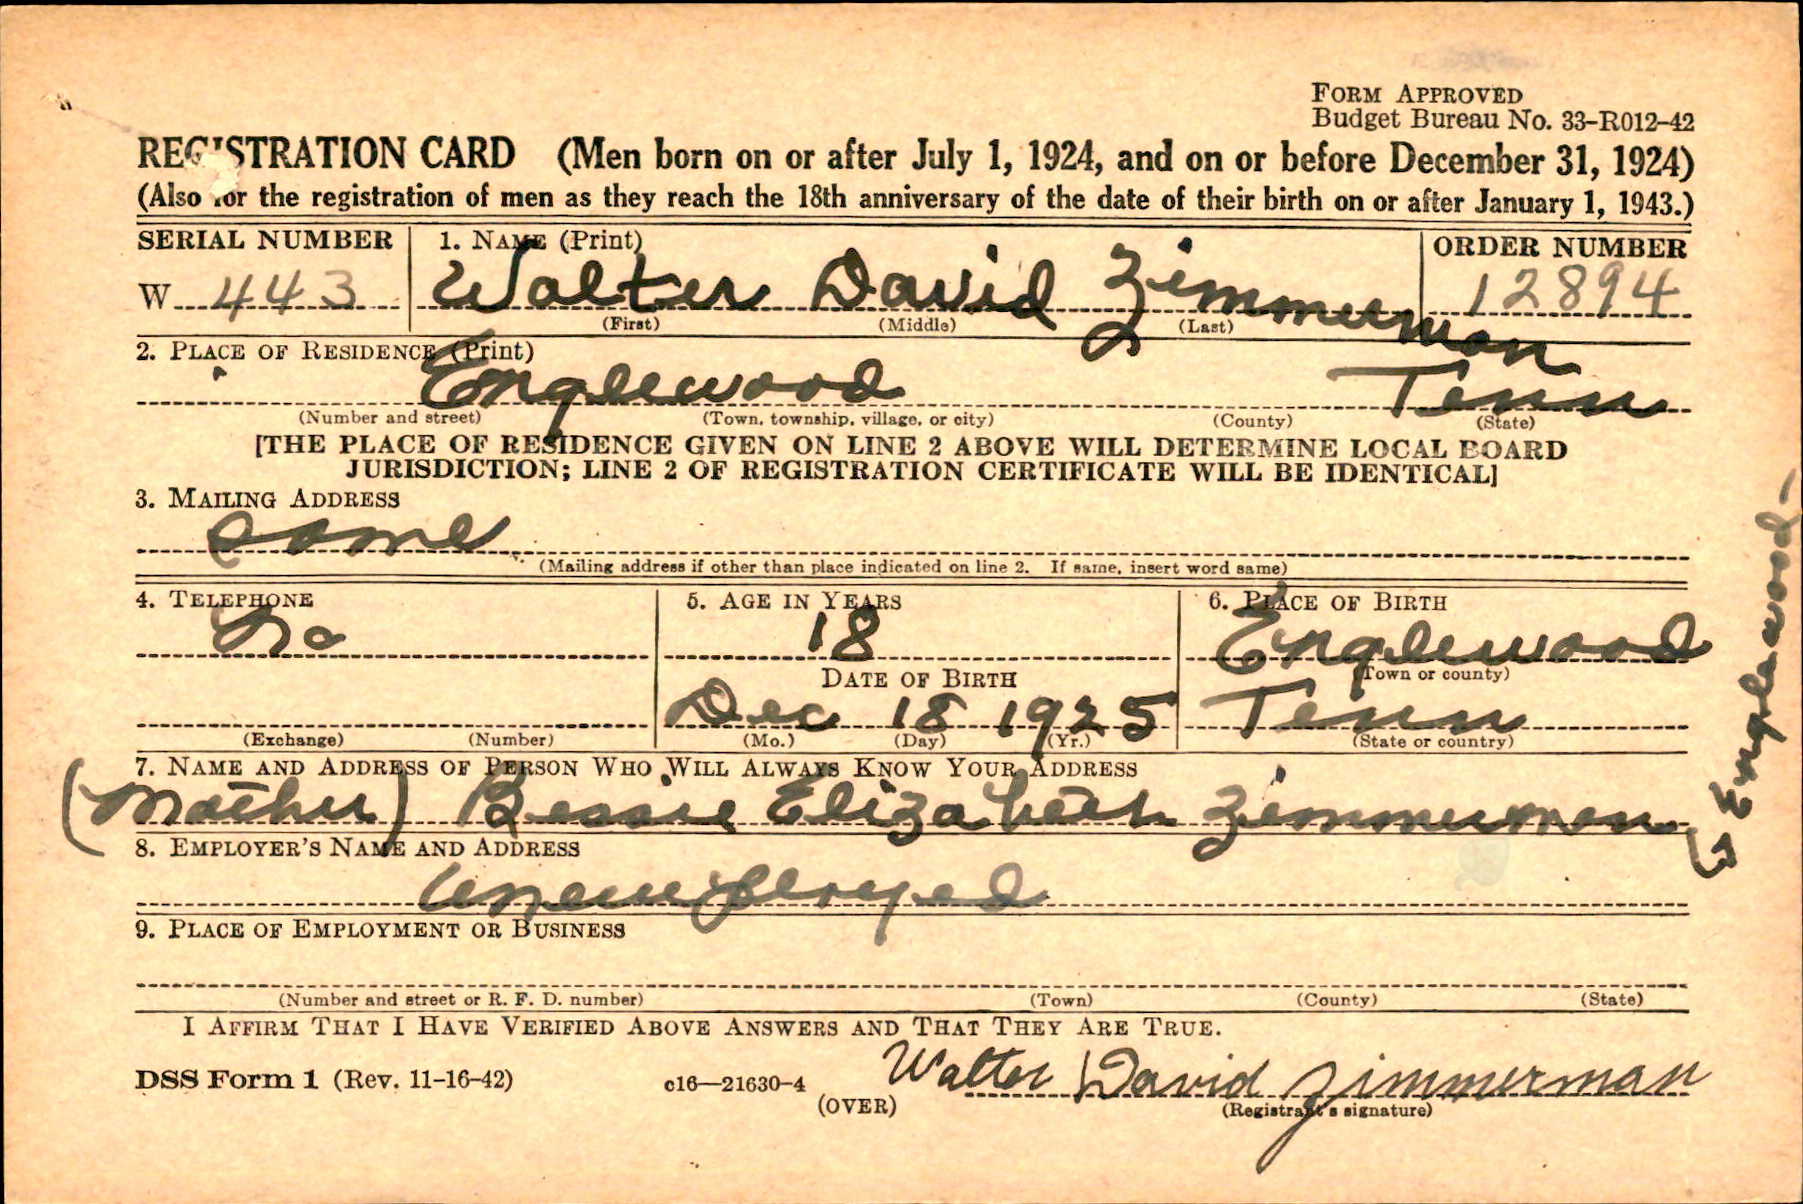 FORM APPROVED
Budget Bureau No. 33-R012-42
REGISTRATION CARD (Men born on or after July 1, 1924, and on or before December 31, 1924)
(Also for the registration of men as they reach the 18th anniversary of the date of their birth on or after January 1, 1943.)
SERIAL NUMBER 1. NAME (Print) ORDER NUMBER
W 443 Walter David Zimmerman 12894
(First) (Middle) (Last)
2. PLACE OF RESIDENCE (Print)
Englewood Tenn
(Number and street) (Town, township, village, or city) (County) (State)
[THE PLACE OF RESIDENCE GIVEN ON LINE 2 ABOVE WILL DETERMINE LOCAL BOARD
JURISDICTION; LINE 2 OF REGISTRATION CERTIFICATE WILL BE IDENTICAL]
3. MAILING ADDRESS
same
(Mailing address if other than place indicated on line 2. If same, insert word same)
4. TELEPHONE 5. AGE IN YEARS 6. PLACE OF BIRTH
No 18 Englewood
(Town or county)
DATE OF BIRTH
Dec 18 1925 Tenn
(Exchange) (Number) (Mo.) (Day) (Yr.) (State or country)
7. NAME AND ADDRESS OF PERSON WHO WILL ALWAYS KNOW YOUR ADDRESS
(Mother) Bessie Elizabeth Zimmerman
Englewood
8. EMPLOYER'S NAME AND ADDRESS
Unemployed
9. PLACE OF EMPLOYMENT OR BUSINESS
(Number and street or R. F. D. number) (Town) (County) (State)
I AFFIRM THAT I HAVE VERIFIED ABOVE ANSWERS AND THAT THEY ARE TRUE.
DSS Form 1 (Rev. 11-16-42) c16—21630-4 Walter David Zimmerman
(OVER) (Registrant's signature)